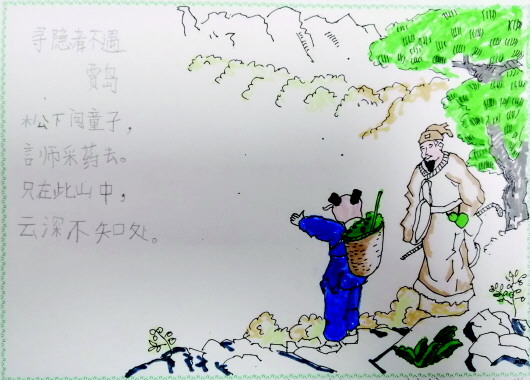 寻隐者不遇
贾岛
松下问童子，
言师采药去。
只在此山中，
云深不知处。